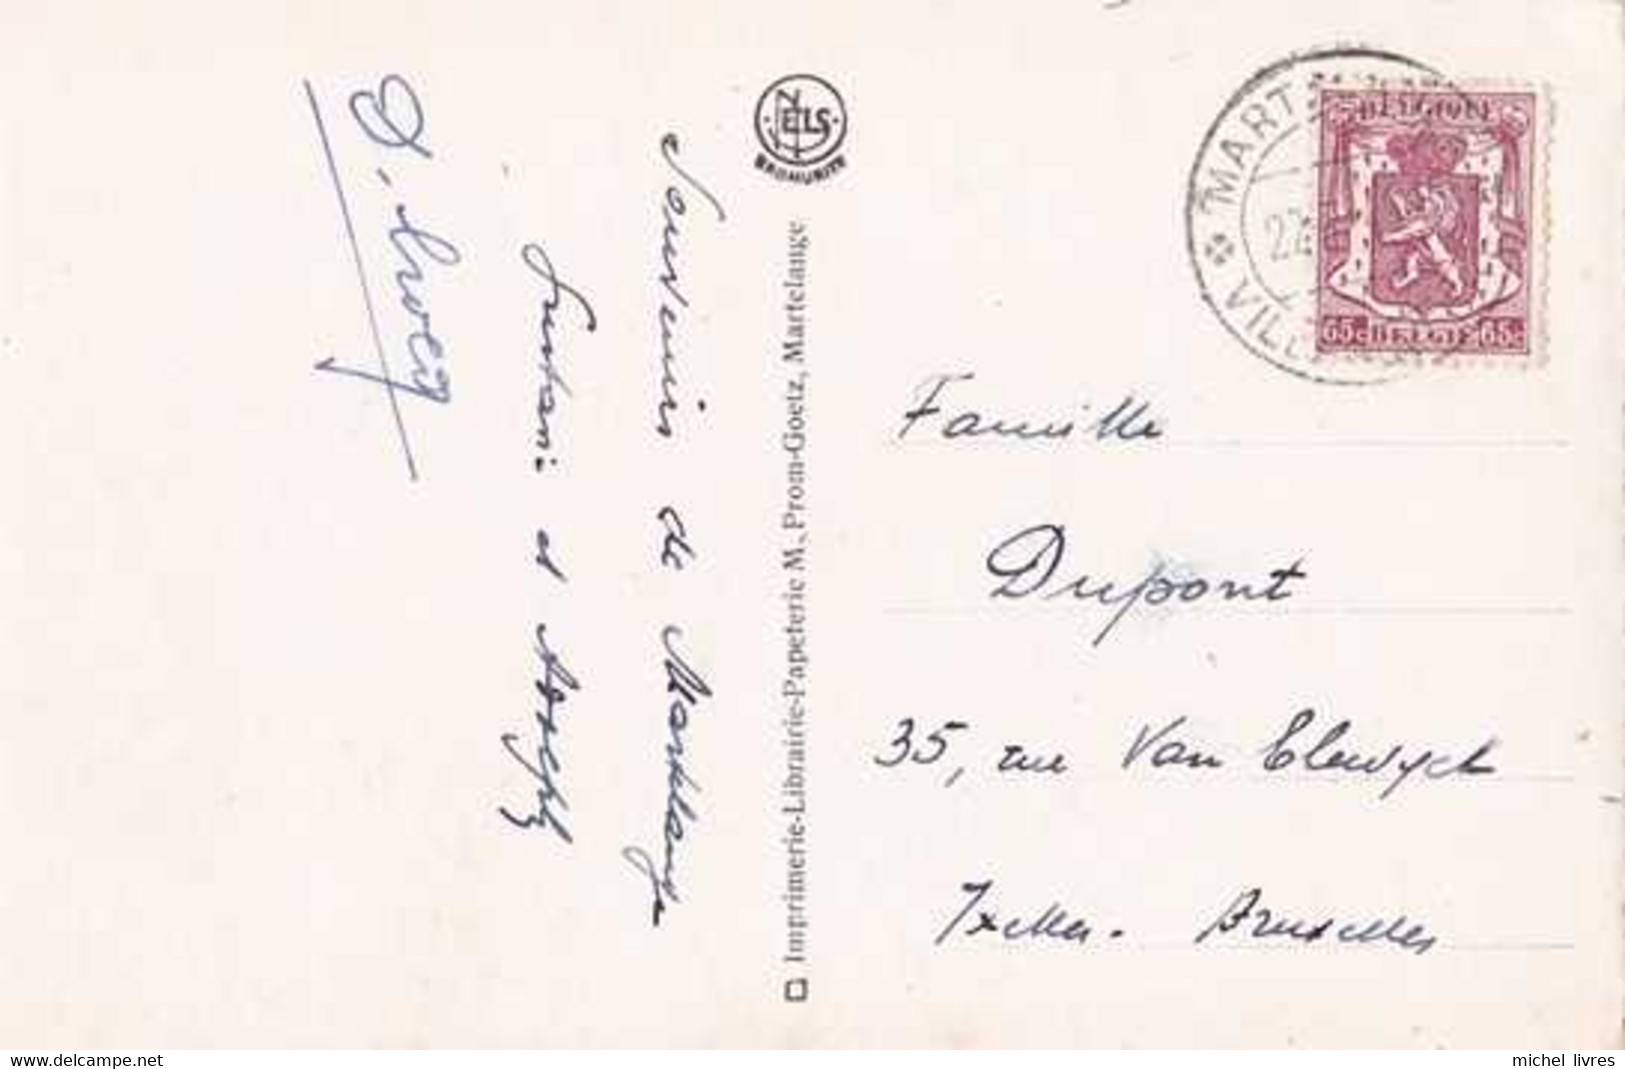 Souvenir de Martelange
et Joseph
NELS
BROMURITE
Imprimerie-Librairie-Papeterie M. Prom-Goetz, Martelange
MART
22
VIL
BELGIQUE
65c BELGIE 65c
Famille
Dupont
35, rue Van Elewyck
Ixelles - Bruxelles
delcampe.net
michel_livres